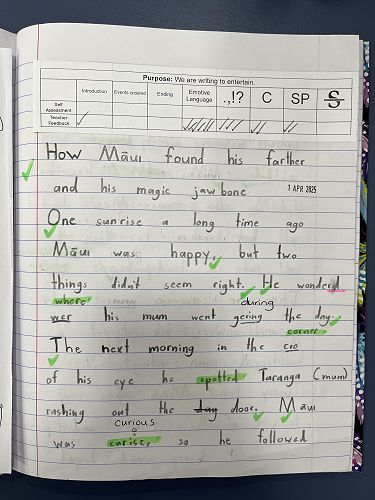 Purpose: We are writing to entertain.
Introduction Events ordered Ending Emotive Language .,!? C SP S
Self Assessment
Teacher Feedback
How Māui found his farther
and his magic jaw bone
1 APR 2025
One sunrise a long time ago
Māui was happy, but two
things didn't seem right. He wonderd
where during
wer his mum went gering the day.
corner
The next morning in the cro
of his eye he spotted Taranga (mum)
rushing out the day door. Māui
curious
was curise, so he followed